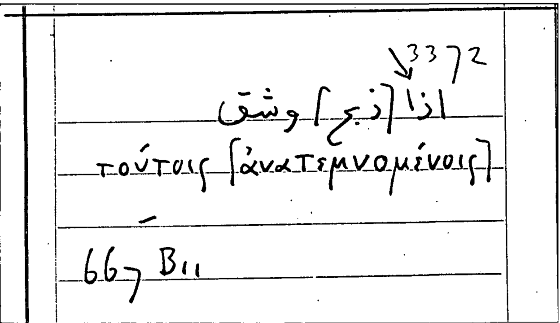 3372
اذا [ذبح] وشق
τούτοις [ἀνατεμνομένοις]
667 B11